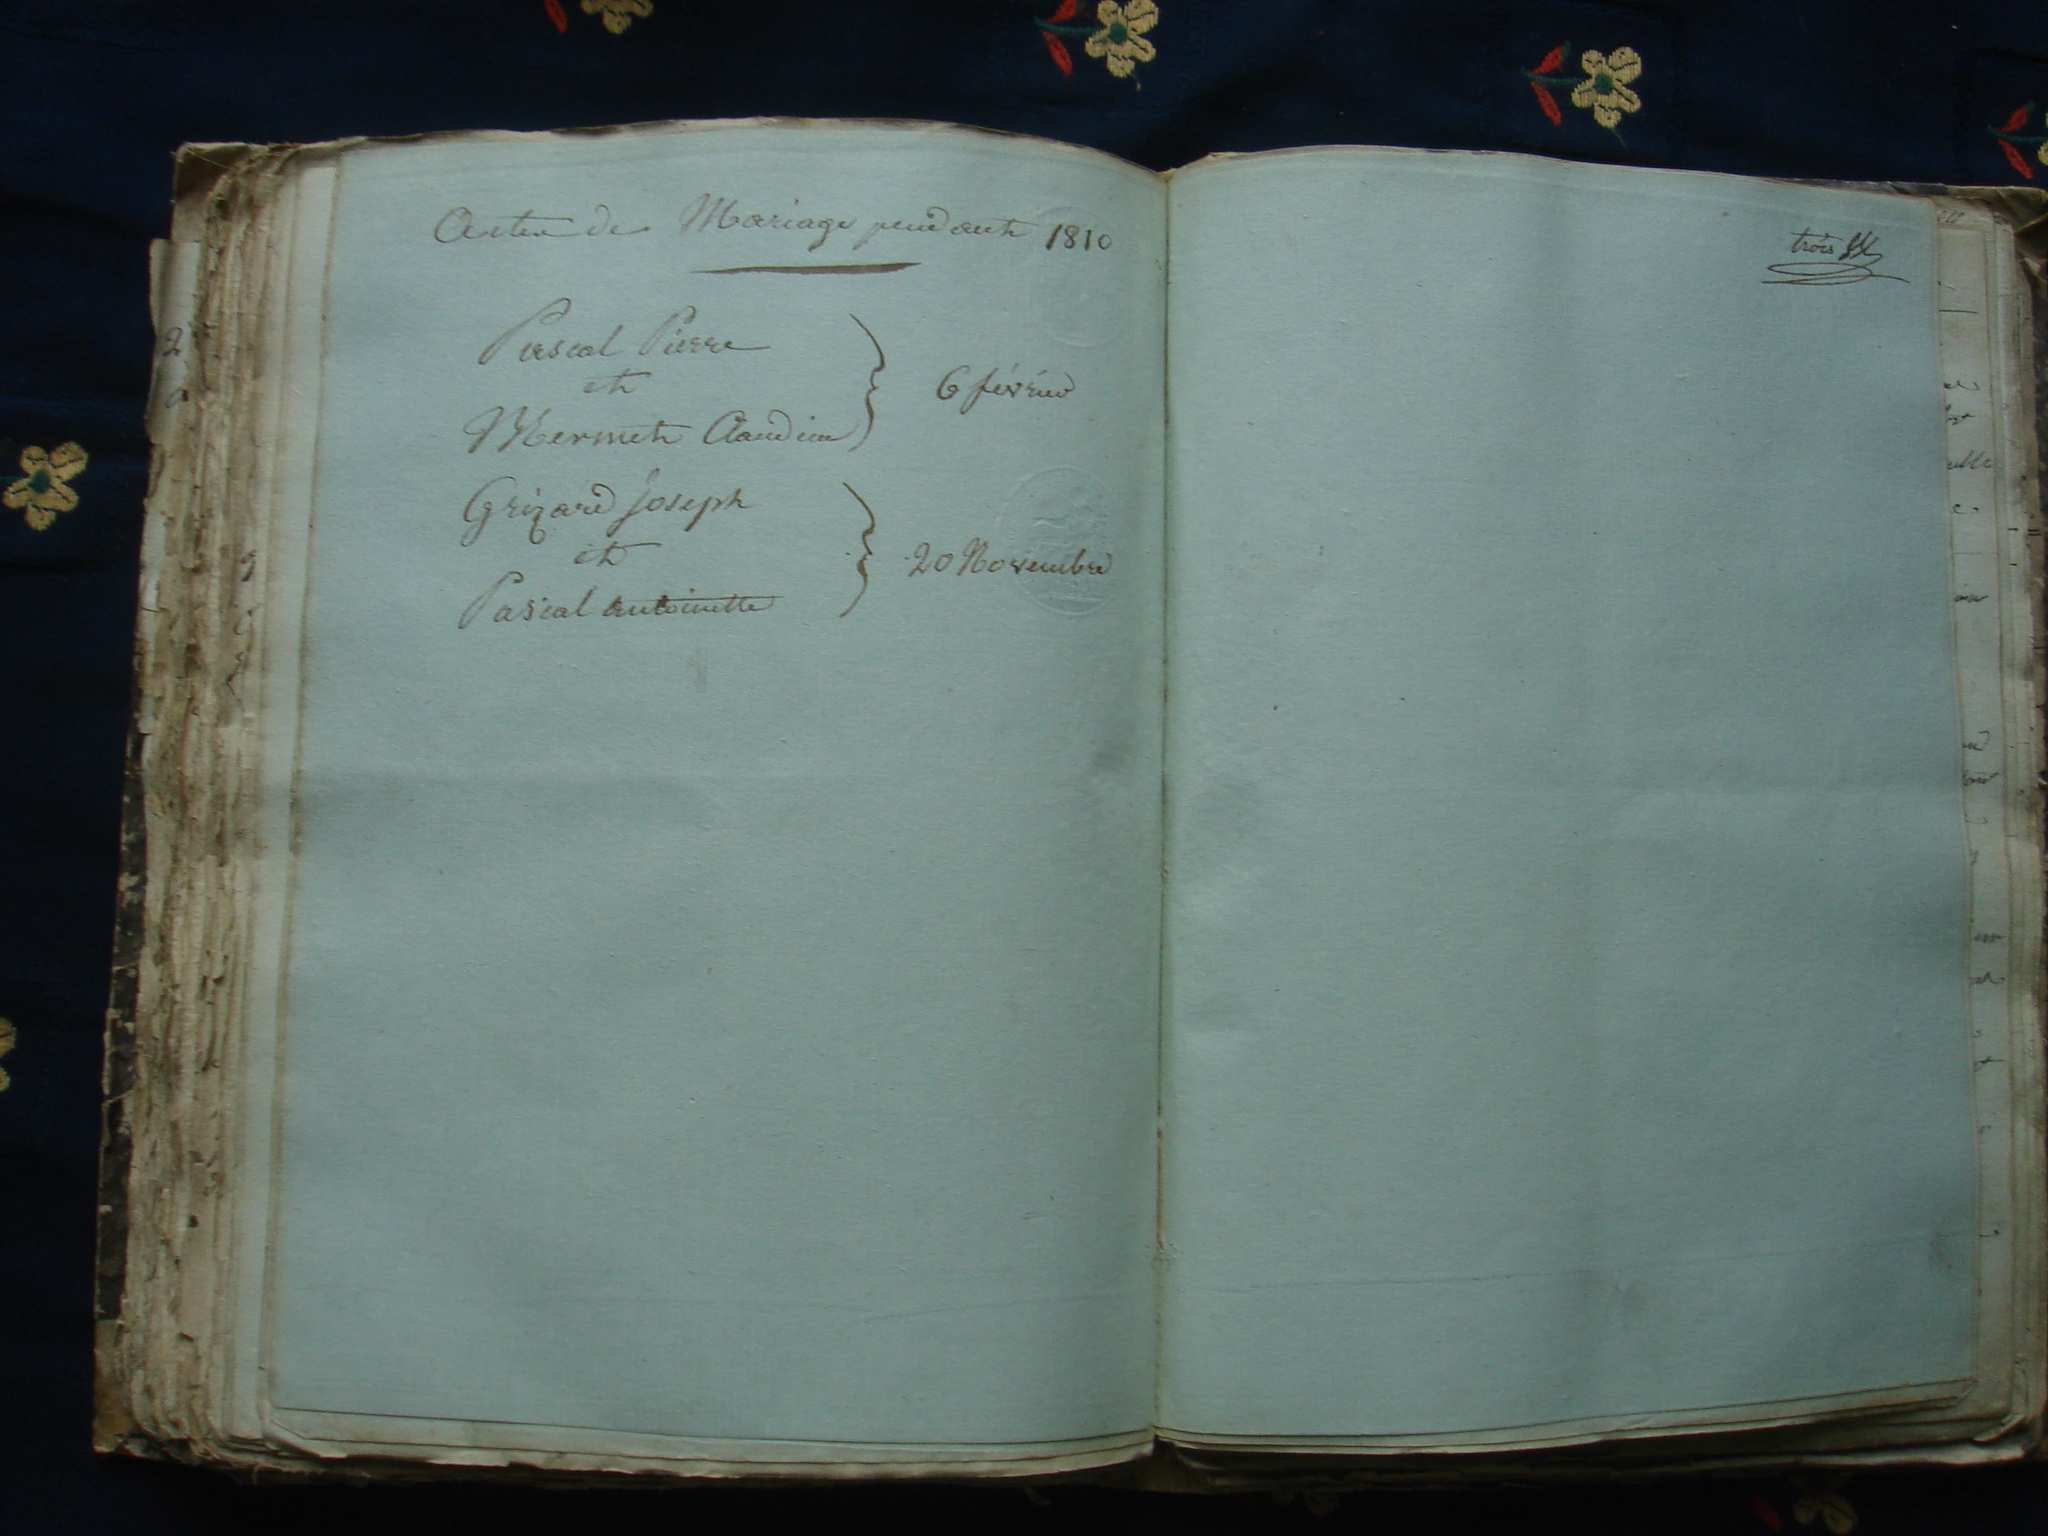 Actes de Mariage pendant 1810
Pascal Pierre
et
Mermet Claudine
6 février
Grizard Joseph
et
Pascal antoinette
20 Novembre
trois